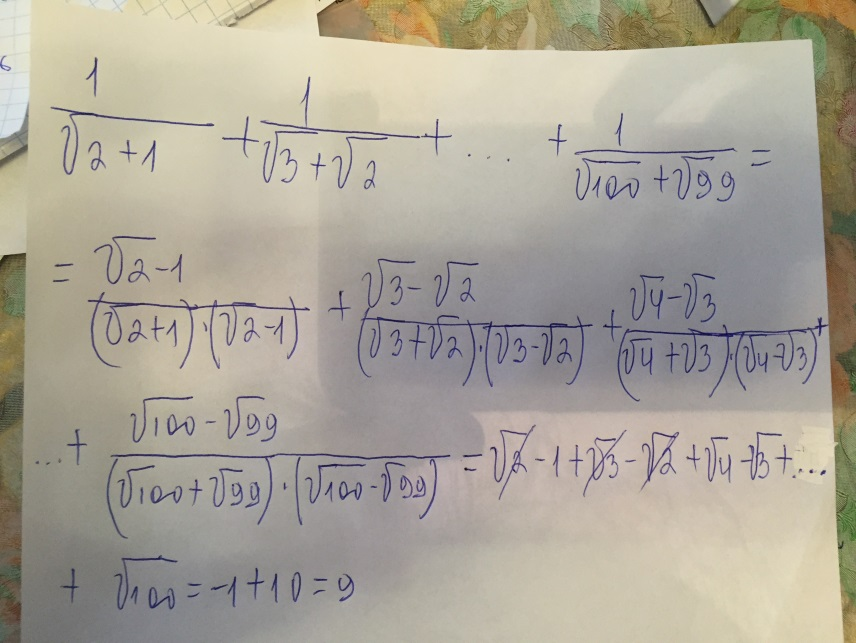 1/(√2+1) + 1/(√3+√2) + .... + 1/(√100+√99) =
= (√2-1)/((√2+1)·(√2-1)) + (√3-√2)/((√3+√2)·(√3-√2)) + (√4-√3)/((√4+√3)·(√4-√3)) +
...+ (√100-√99)/((√100+√99)·(√100-√99)) = √2-1+√3-√2+√4-√3+...
+ √100=-1+10=9
6